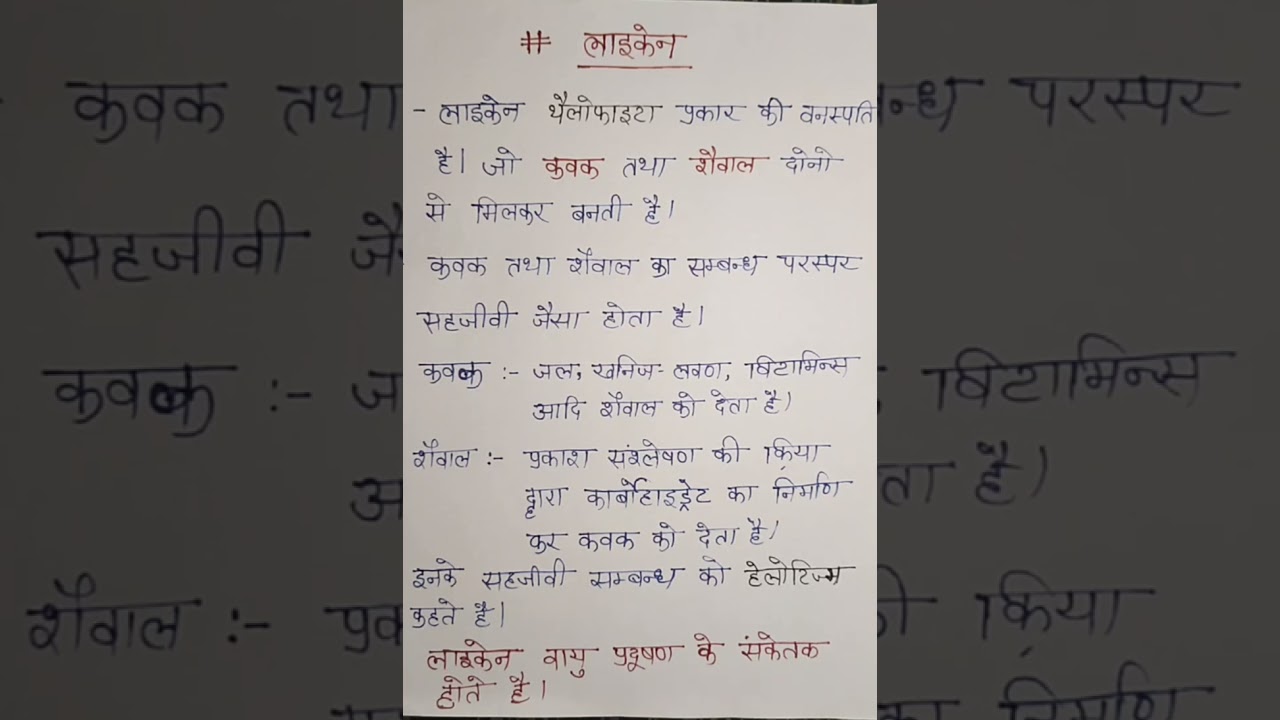 # लाइकेन
- लाइकेन थैलोफाइटा प्रकार की वनस्पति
है। जो कवक तथा शैवाल दोनो
से मिलकर बनती है।
कवक तथा शैवाल का सम्बन्ध परस्पर
सहजीवी जैसा होता है।
कवक :- जल, खनिज लवण, विटामिन्स
आदि शैवाल को देता है।
शैवाल :- प्रकाश संश्लेषण की क्रिया
द्वारा कार्बोहाइड्रेट का निर्माण
कर कवक को देता है।
इनके सहजीवी सम्बन्ध को हेलोटिज्म
कहते है।
लाइकेन वायु प्रदूषण के संकेतक
होते है।